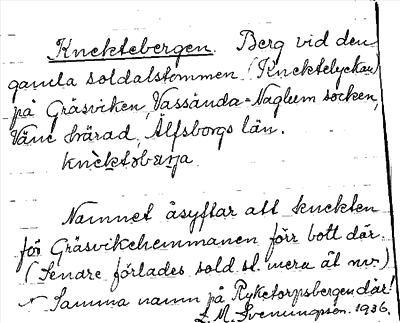 Knektebergen. Berg vid den
gamla soldatstommen (Knektelyckan)
på Gräsviken, Vassända-Naglum socken,
Väne härad, Älfsborgs län.
knèktobærja
Namnet åsyftar att knekten
för Gräsvikehemmanen förr bott där.
(Senare förlades sold. st. mera åt nv.)
Samma namn på Ryketorpsbergen där!
L. M. Svenungsson. 1936.